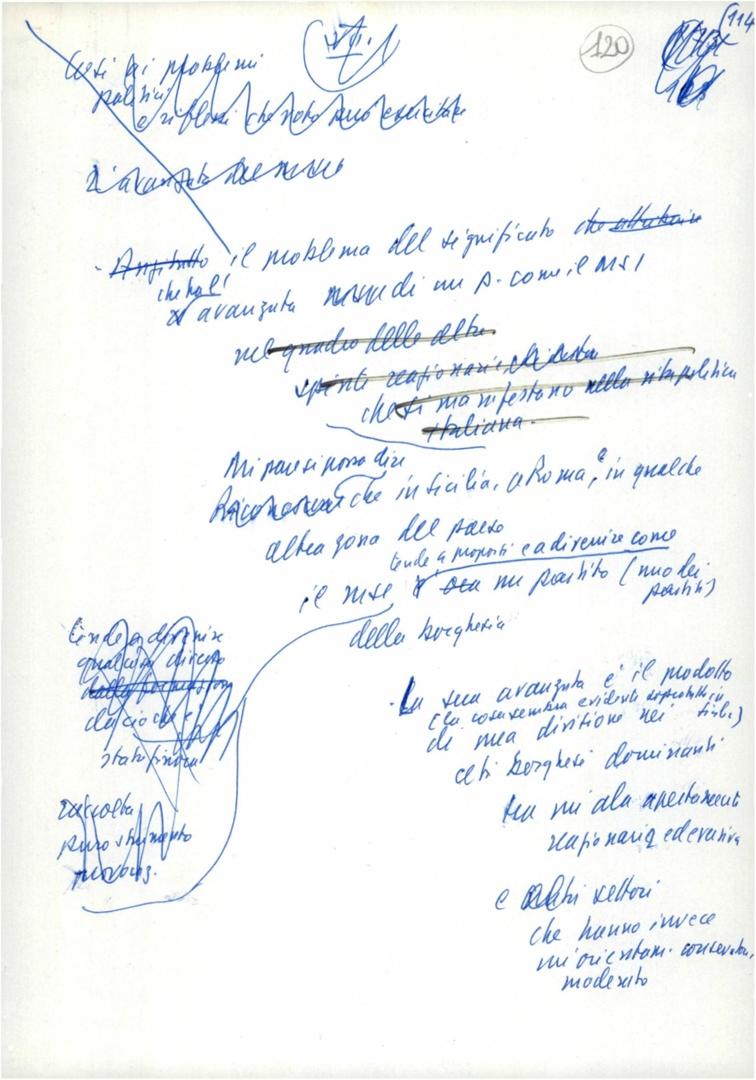 VII.
120
114
Certi dei problemi
politici
e riflessi che
L'avanzata
- Anzitutto il problema del significato che attribuire
che ha l'
avanzata di un p. come il MSI
nel quadro delle altre
spinte reazionarie
che si manifestano nella vita politica
italiana.
Mi pare si possa dire
che in Sicilia, a Roma, e in qualche
altra zona del paese
tende a proporsi e a divenire come
il msi un partito (uno dei
partiti)
della borghesia
tende a divenire
qualcosa di diverso
da ciò che è
stato finora
raccolta
puro strumento
- La sua avanzata è il prodotto
(la cosa sembra evidente soprattutto in
di una divisione nei Sicilia)
ceti borghesi dominanti
tra un'ala apertamente
reazionaria ed eversiva
e altri settori
che hanno invece
un orientam. conservatore,
moderato